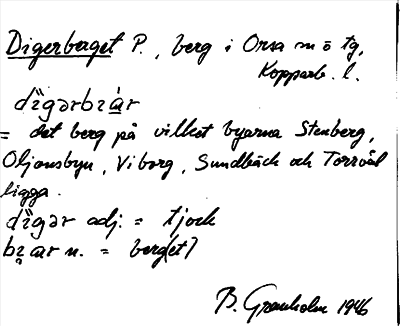 Digerberget P., berg i Orsa m ö tg,
Kopparb. l.
digərbɪar
= det berg på vilket byarna Stenberg,
Oljonsbyn, Viborg, Sundbäck och Torrvål
ligga.
digər adj. = tjock
bɪar n. = berg(et)
B. Granholm 1946